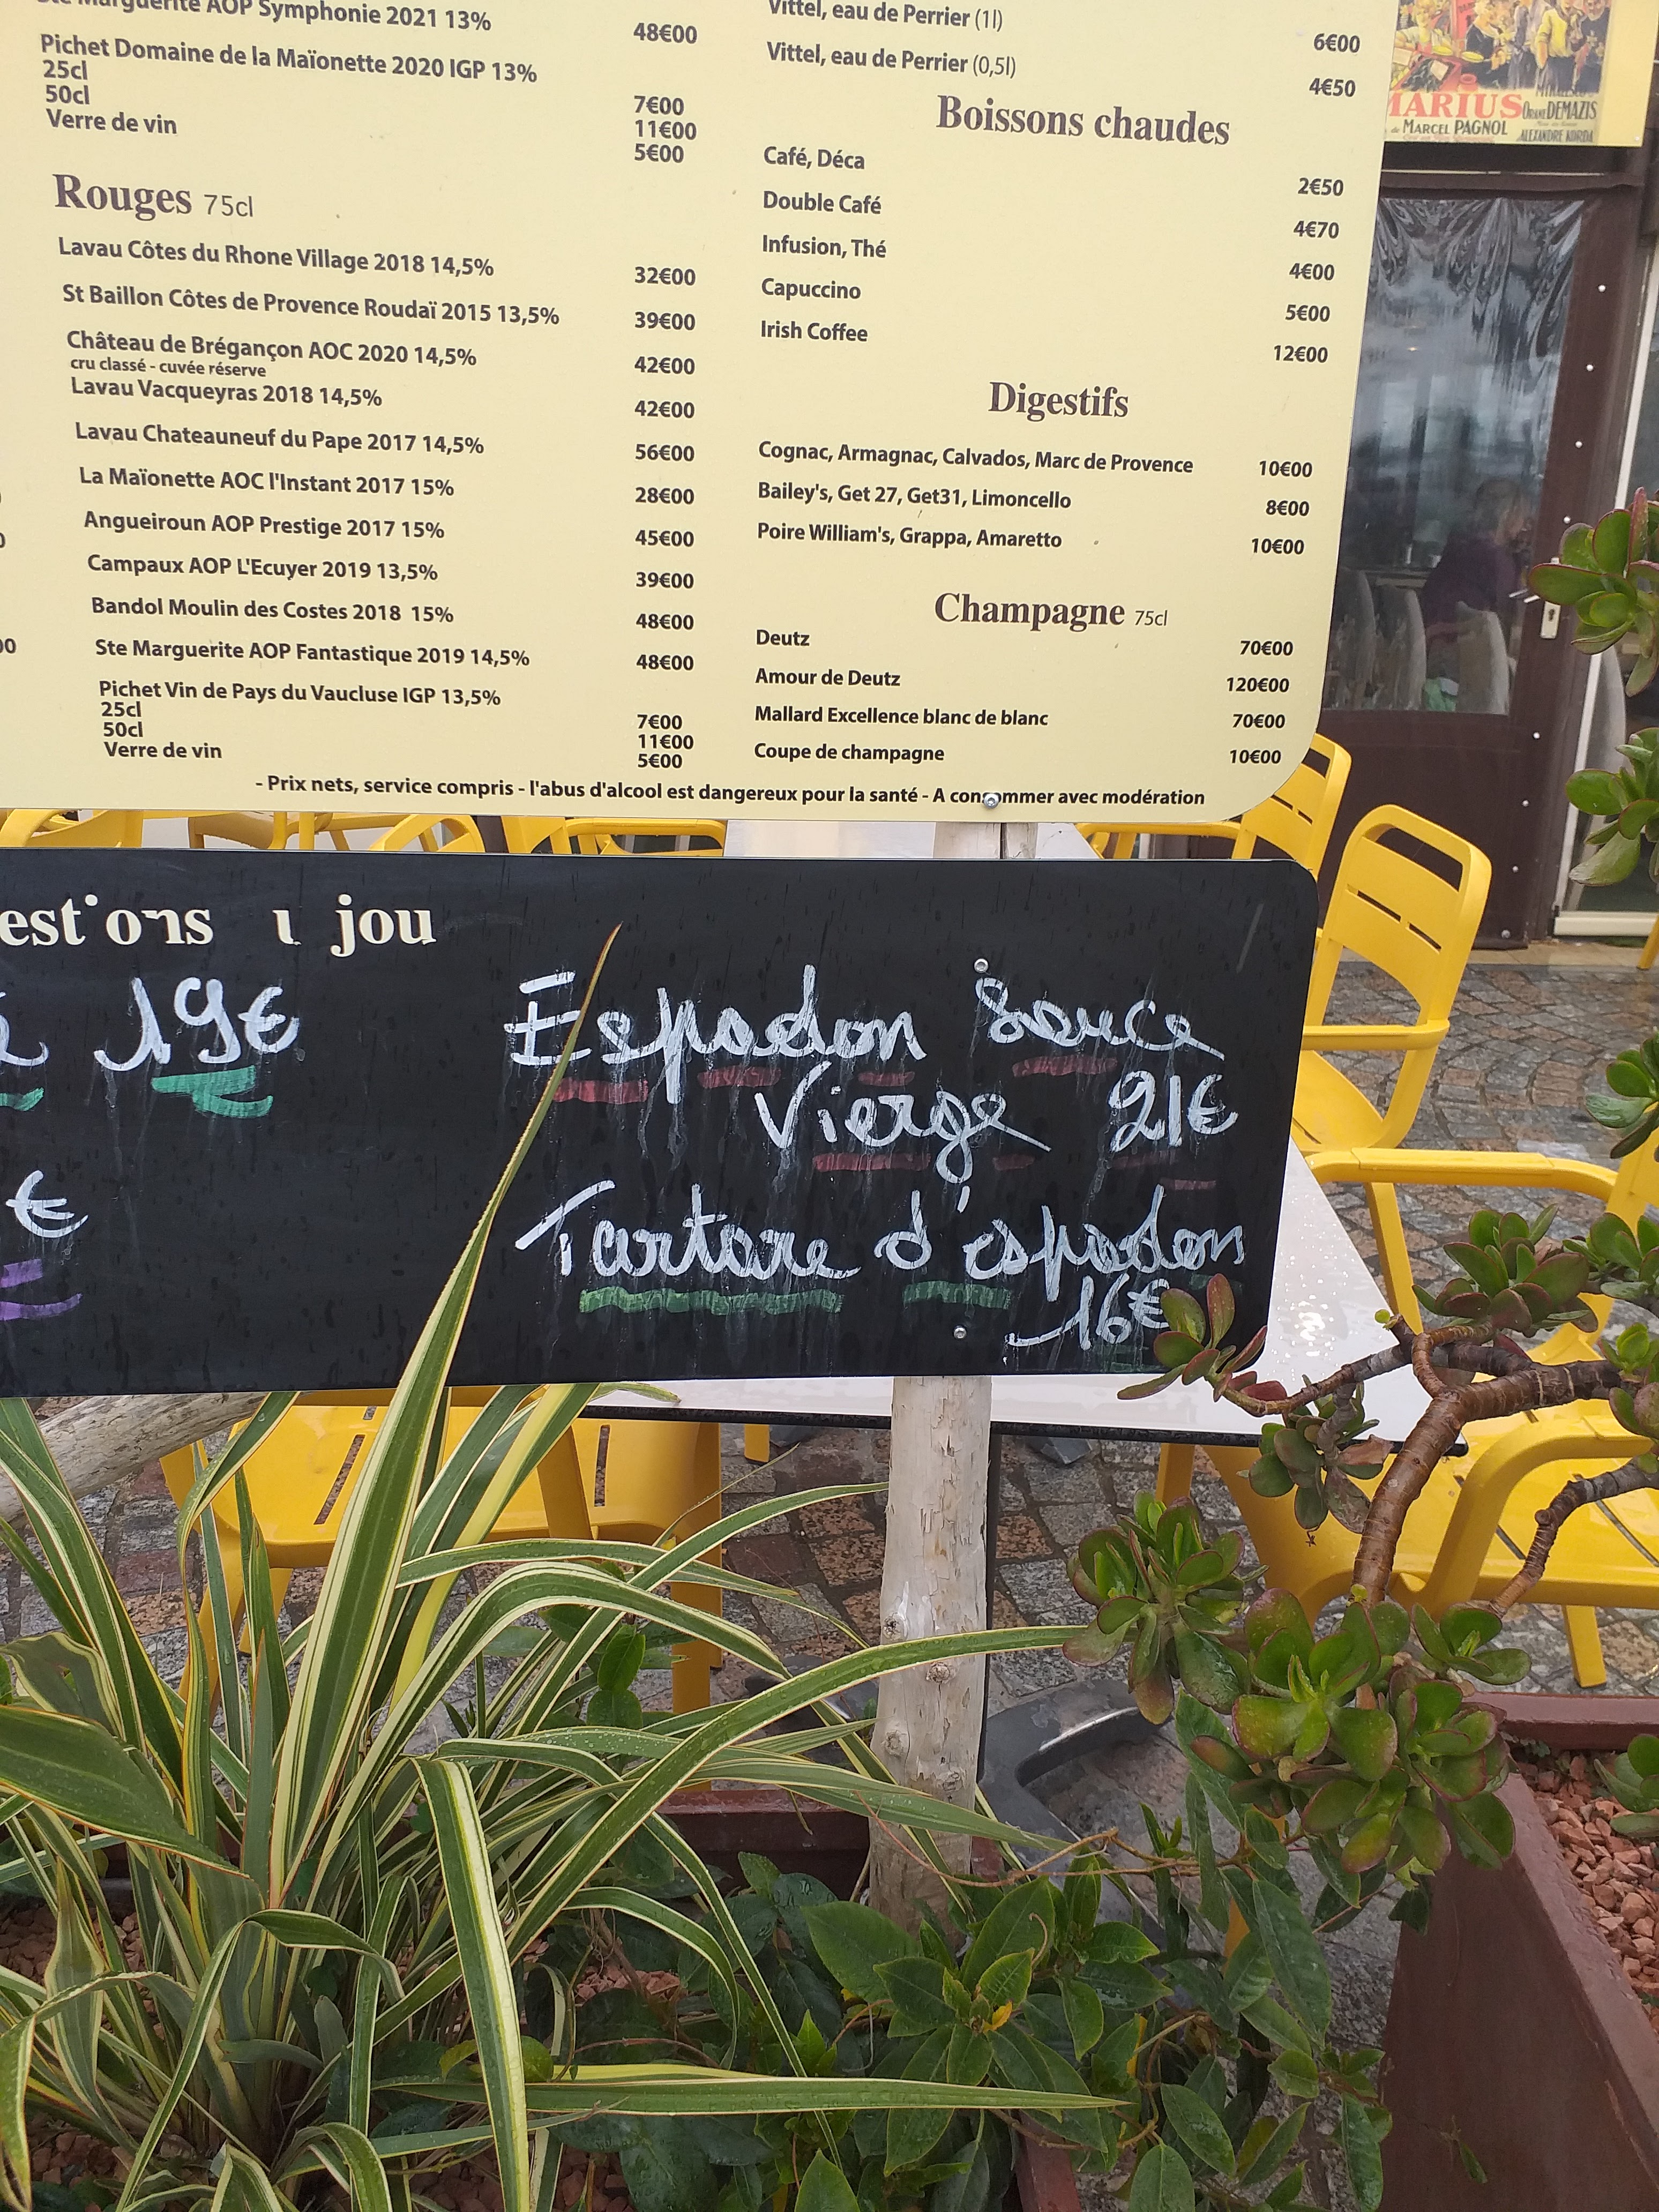 Marguerite AOP Symphonie 2021 13% 48€00
Pichet Domaine de la Maïonette 2020 IGP 13%
25cl 7€00
50cl 11€00
Verre de vin 5€00
Rouges 75cl
Lavau Côtes du Rhone Village 2018 14,5% 32€00
St Baillon Côtes de Provence Roudaï 2015 13,5% 39€00
Château de Brégançon AOC 2020 14,5% 42€00
cru classé - cuvée réserve
Lavau Vacqueyras 2018 14,5% 42€00
Lavau Chateauneuf du Pape 2017 14,5% 56€00
La Maïonette AOC l'Instant 2017 15% 28€00
Angueiroun AOP Prestige 2017 15% 45€00
Campaux AOP L'Ecuyer 2019 13,5% 39€00
Bandol Moulin des Costes 2018 15% 48€00
Ste Marguerite AOP Fantastique 2019 14,5% 48€00
Pichet Vin de Pays du Vaucluse IGP 13,5%
25cl 7€00
50cl 11€00
Verre de vin 5€00
Vittel, eau de Perrier (1l) 6€00
Vittel, eau de Perrier (0,5l) 4€50
Boissons chaudes
Café, Déca 2€50
Double Café 4€70
Infusion, Thé 4€00
Capuccino 5€00
Irish Coffee 12€00
Digestifs
Cognac, Armagnac, Calvados, Marc de Provence 10€00
Bailey's, Get 27, Get31, Limoncello 8€00
Poire William's, Grappa, Amaretto 10€00
Champagne 75cl
Deutz 70€00
Amour de Deutz 120€00
Mallard Excellence blanc de blanc 70€00
Coupe de champagne 10€00
- Prix nets, service compris - l'abus d'alcool est dangereux pour la santé - A consommer avec modération
MARIUS
de MARCEL PAGNOL
ORANE DEMAZIS
ALEXANDRE KORDA
jou
19€
€
Espadon Sauce
Vierge 21€
Tartare d'espadon
16€